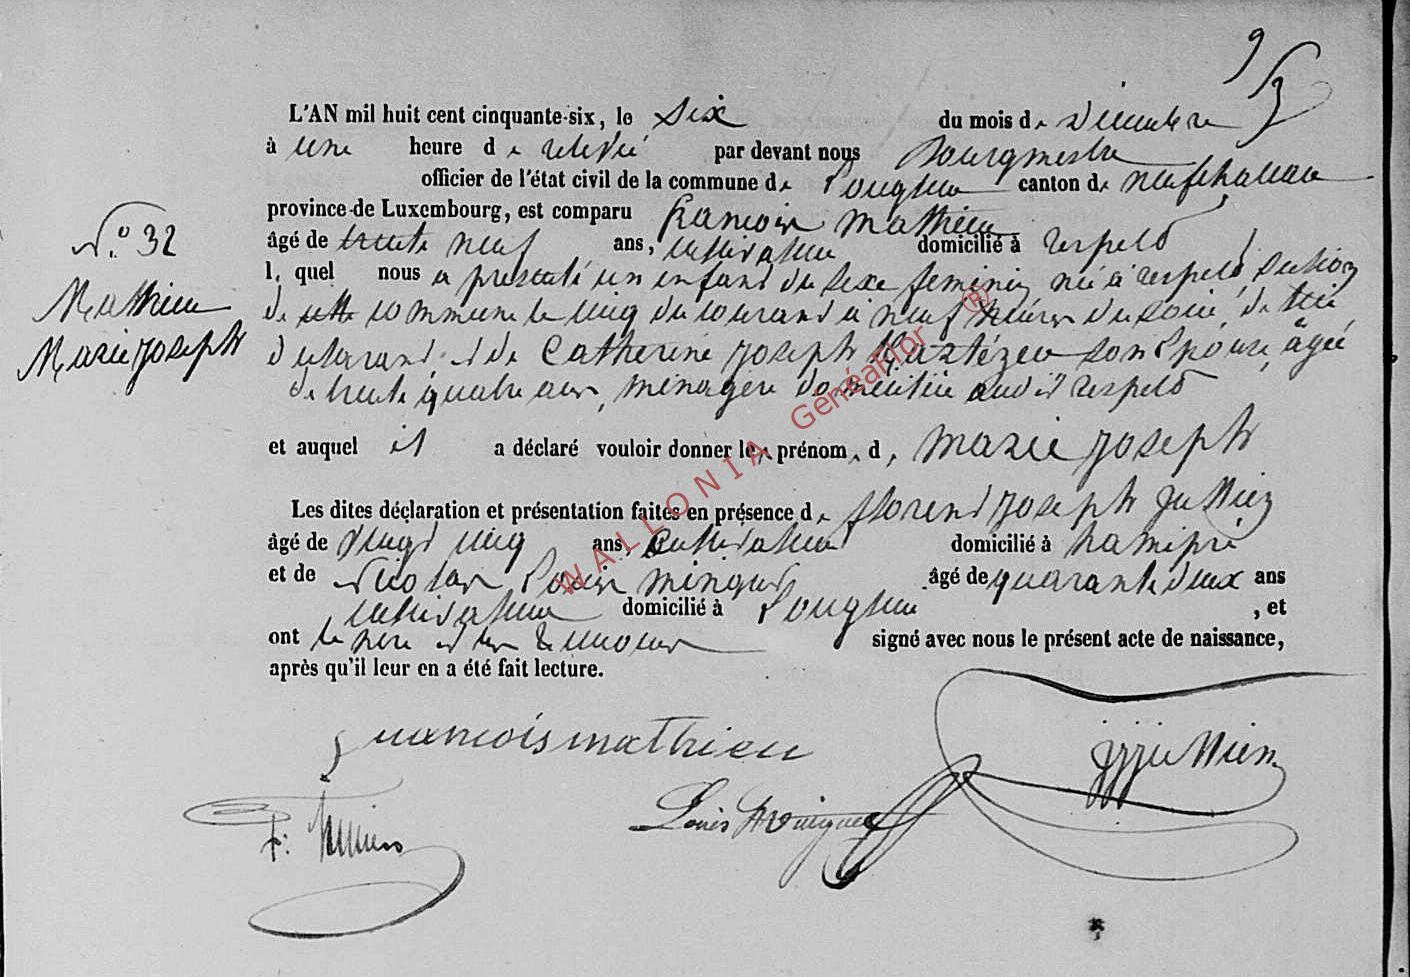 9/3
L'AN mil huit cent cinquante-six, le six du mois de décembre
à une heure de relevée par devant nous Bourgmestre
officier de l'état civil de la commune de Longlier canton de neufchateau
province de Luxembourg, est comparu francois Mathieu
âgé de trente neuf ans, cultivateur domicilié à respelt
lequel nous a presenté un enfant du sexe feminin née à respelt, section
de cette commune le cinq du courant à neuf heures du soir, de lui
declarant, et de Catherine joseph son Epouse, âgée
de trente quatre ans, ménagère domiciliée audit respelt
et auquel il a déclaré vouloir donner les prénoms de marie joseph
Les dites déclaration et présentation faites en présence de florent joseph Jullien
âgé de vingt cinq ans, cultivateur domicilié à hamipré
et de Louis âgé de quarante deux ans
cultivateur domicilié à Longlier, et
ont le pere et les temoins signé avec nous le présent acte de naissance,
après qu'il leur en a été fait lecture.
N.° 32
Mathieu
Marie joseph
francois mathieu
fjjullien
Louis
WALLONIA Généaflor ®